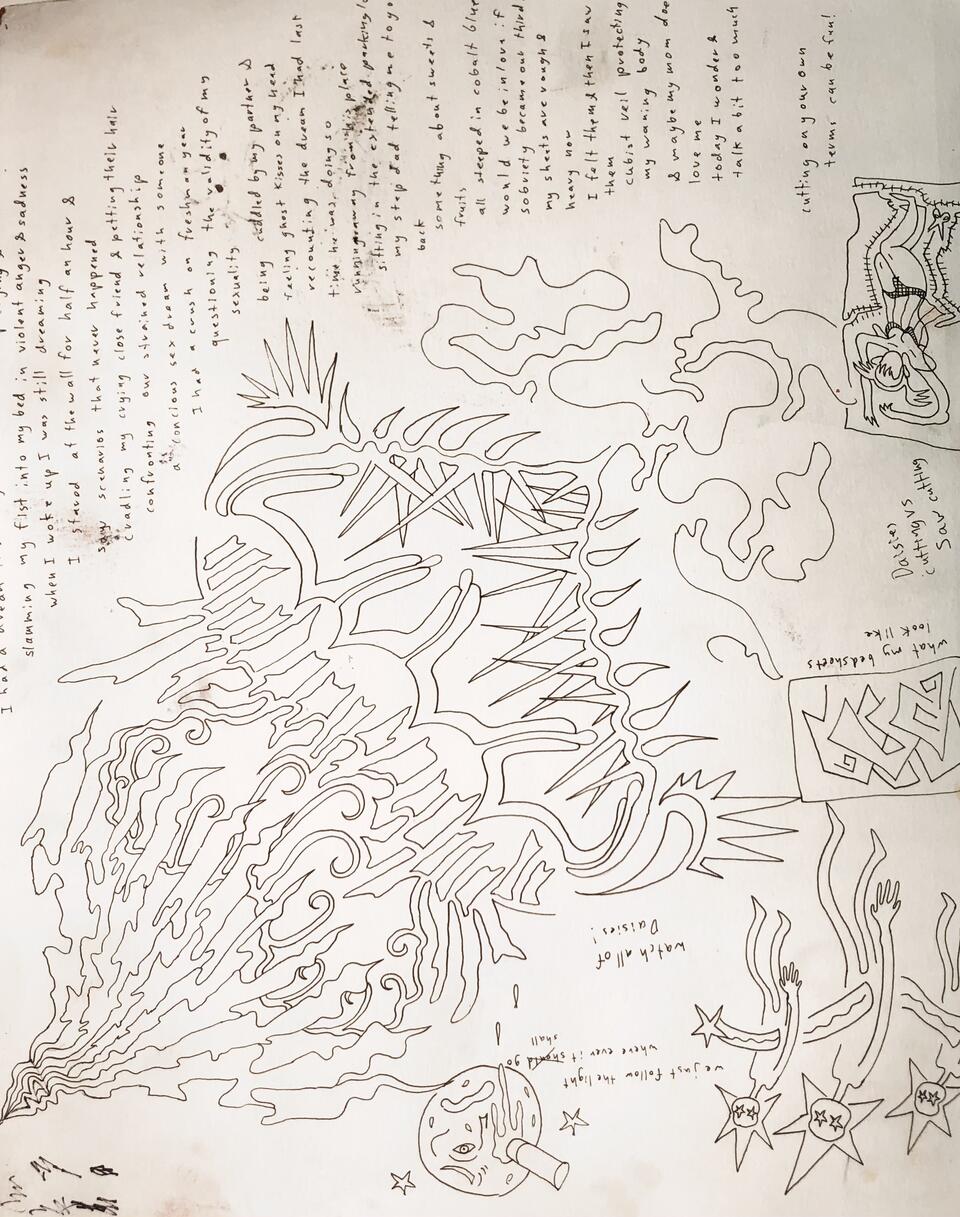 I had a dream
slamming my fist into my bed in violent anger & sadness
when I woke up I was still dreaming
I stared at the wall for half an hour &
scenarios that never happened
cradling my crying close friend & petting their hair
confronting our strained relationship
a concious sex dream with someone
I had a crush on freshman year
questioning the validity of my
sexuality
being cuddled by my partner &
feeling ghost kisses on my head
recounting the dream I had last
time he was doing so
running away from his place
sitting in the extended parking
my step dad telling me to go
back
something about sweets &
fruits
all steeped in cobalt blue
would we be in love if
sobriety became our third
my sheets are rough &
heavy now
I felt them & then I saw
them
cubist veil protecting
my waning body
& maybe my mom does
love me
today I wonder &
talk a bit too much
cutting on your own
terms can be fun!
Daisies
cutting vs
Sav cutting
what my bedsheets
look like
watch all of
Daisies!
we just follow the light
where ever it should go
shall